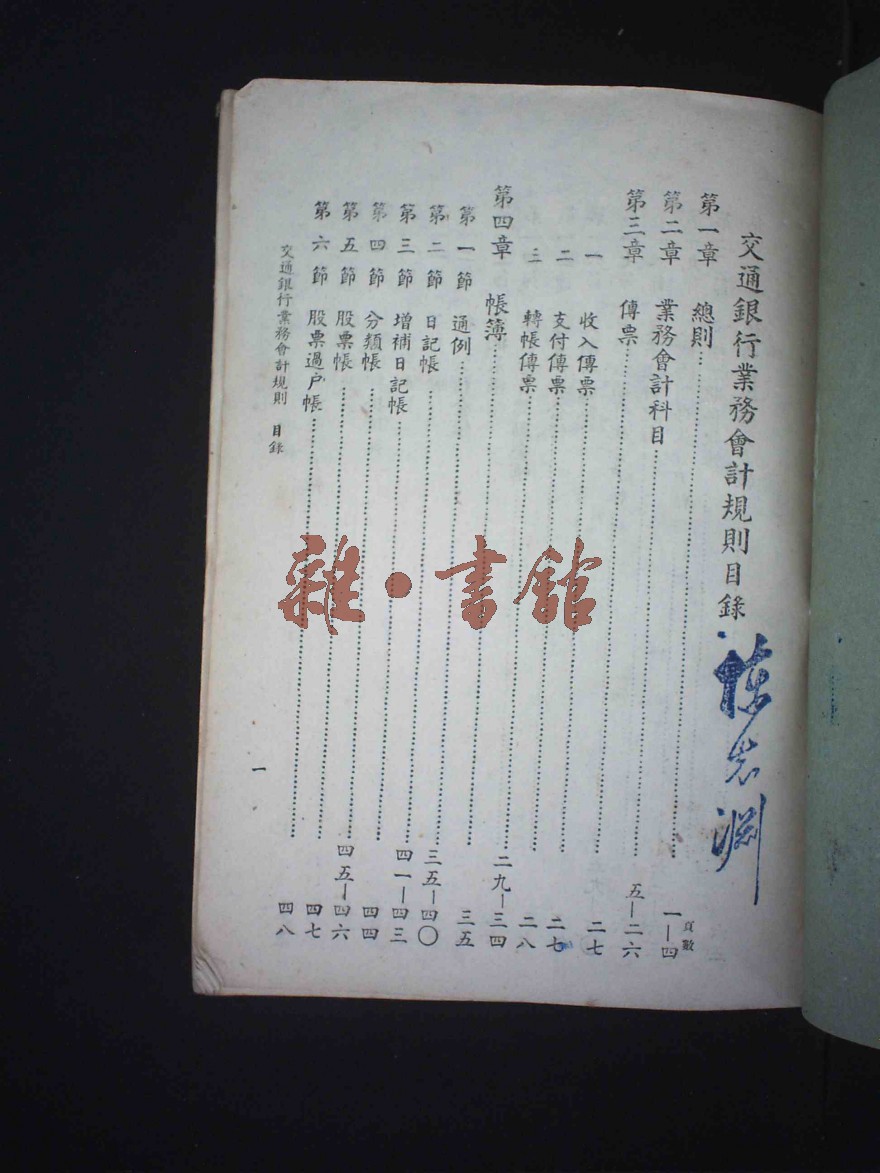 交通銀行業務會計規則目錄
頁數
第一章 總則……一—四
第二章 業務會計科目……五—二六
第三章 傳票……二七
一 收入傳票……二七
二 支付傳票……二八
三 轉帳傳票……二九—三四
第四章 帳簿……三五
第一節 通例……三五—四〇
第二節 日記帳……四一—四三
第三節 增補日記帳……四四
第四節 分類帳……四五—四六
第五節 股票帳……四七
第六節 股票過戶帳……四八
交通銀行業務會計規則 目錄
一
雜·書館